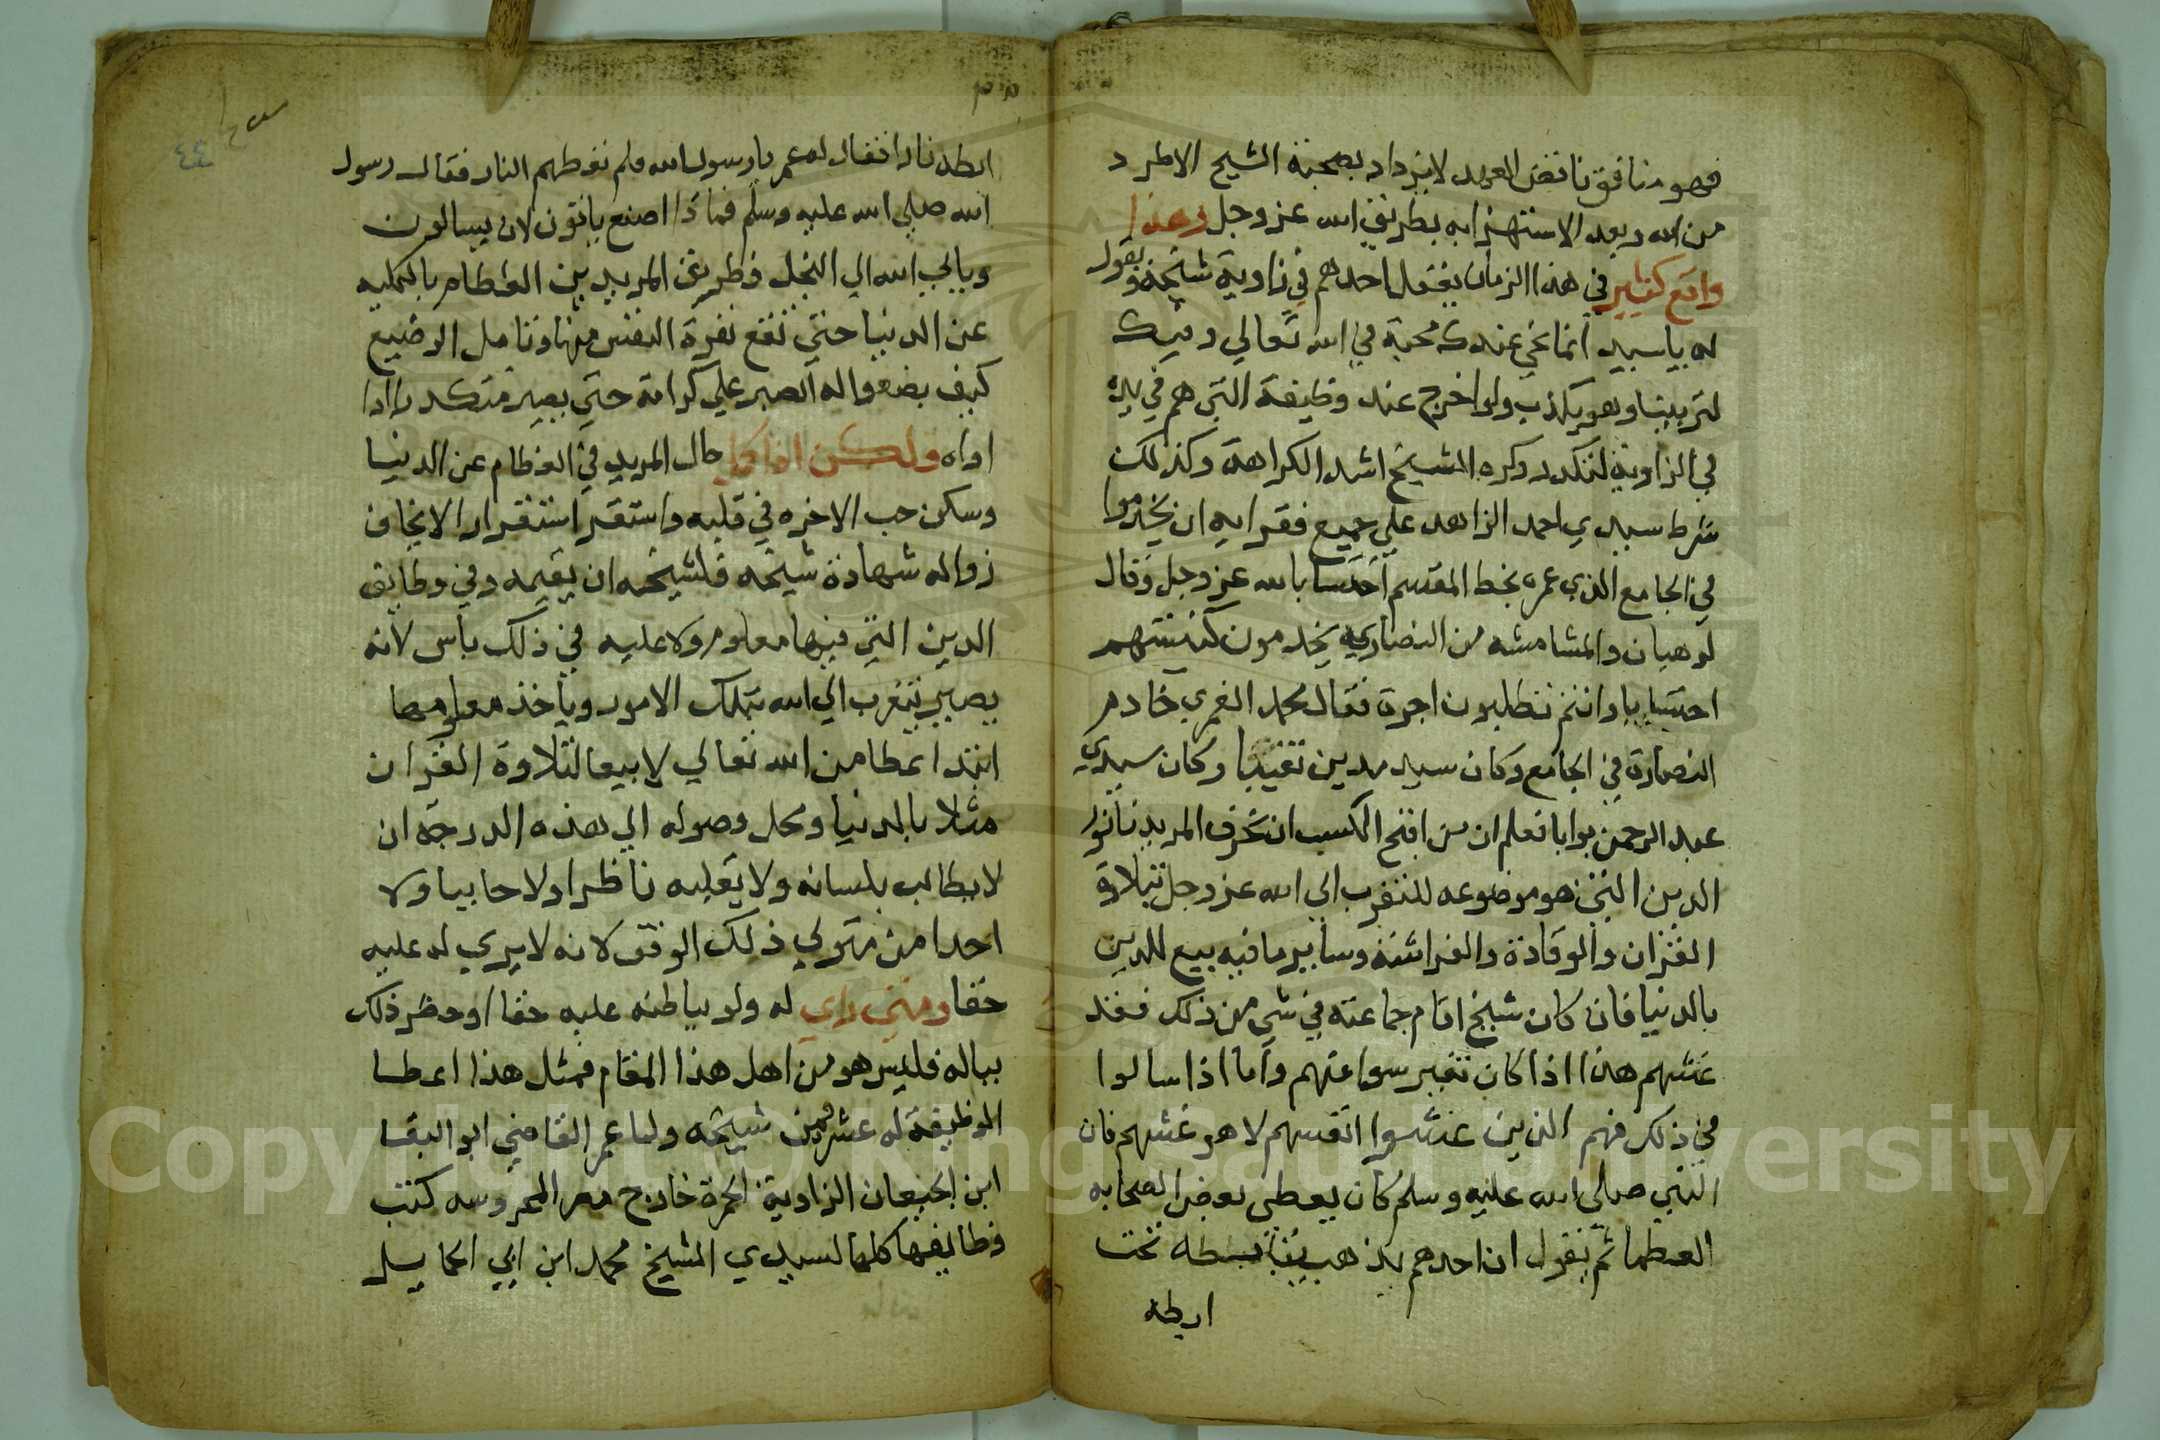 فهو منافق ناقض العهد لا يزداد بصحبة الشيخ الا طرد
من الله وبعد الاستهزايه بطريق الله عز وجل وهذا
واقع كثير في هذا الزمان يفعل احدهم في زاوية شيخه ويقول
له ياسيد انما نحن عندك محبة في الله تعالي وفيك
لتربينا وهو يكذب ولو اخرج عنه وظيفة التي هم في يده
في الزاوية لتكدر وكره الشيخ اشد الكراهة وكذلك
شرط سيدي احمد الزاهد علي جميع فقرايه ان يخدموا
في الجامع الذي عمره بخط المقسم احتسابا لله عز وجل وقال
لو هبان والمشامشه من النصاري يخدمون كنيستهم
احتسابا وانتم تطلبون اجرة فقال محمد الغمري خادم
النصارة في الجامع وكان سيد مدين نقيبا وكان سيدي
عبد الرحمن بوابا تعلم ان من اقبح الكسب ان تحرف المريد نانور
الدين التي هو موضوعه للتقرب الي الله عز وجل بتلاوة
القران والوقادة والفراشة وساير ما فيه بيع للدين
بالدنيا فان كان شيخ اقام جماعته في شي من ذلك فقد
غشهم هذا اذا كان تغير سواعهم واما اذا سالوا
في ذلك فهم الذين غشوا انفسهم لا هو غشهم فان
النبي صلي الله عليه وسلم كان يعطي بعض الصحابه
العطا ثم يقول ان احدهم يذهب تحت
ابطه
ابطه نارا فقال له عمر يارسول الله فلم تعطهم النار فقال رسول
الله صلي الله عليه وسلم فماذا اصنع يابون الا ان يسالون
ويابي الله الي البخل فطريق المريدين الفطام بالكليه
عن الدنيا حتي تقع نفرة النفس منها وتامل الرضيع
كيف يضعوا له الصبر علي كرامة حتي يصير متكدرا اذا
اراه ولكن اذا كمل حال المريد في الفطام عن الدنيا
وسكن حب الاخره في قلبه واستقر استقرار الا يخاف
زواله شهادة شيخه فلشيخه ان يقيمه وفي وظايف
الدين التي فيها معلوم ولا عليه في ذلك باس لانه
يصير يتقرب الي الله بتلك الامور وياخذ معلومها
ابتدا عطا من الله تعالي لا بيعا لتلاوة القران
مثلا بالدنيا ومحل وصوله الي هذه الدرجة ان
لا يطالب بلسانه ولا بقلبه ناظرا ولا جابيا ولا
احدا من متولي ذلك الوقف لانه لا يري له عليه
حقا ومتي راي له ولو بباطنه عليه حقا او حضر ذلك
بباله فليس هو من اهل هذا المقام فمثل هذا اعطا
الوظيفة له غش من شيخه ولما عمر القاضي ابو البقا
ابن الجيعان الزاوية الحمرة خارج مصر المحروسه كتب
وظايفها كلها لسيدي الشيخ محمد ابن ابي الحمايل
٤٤
Copyright © King Saud University